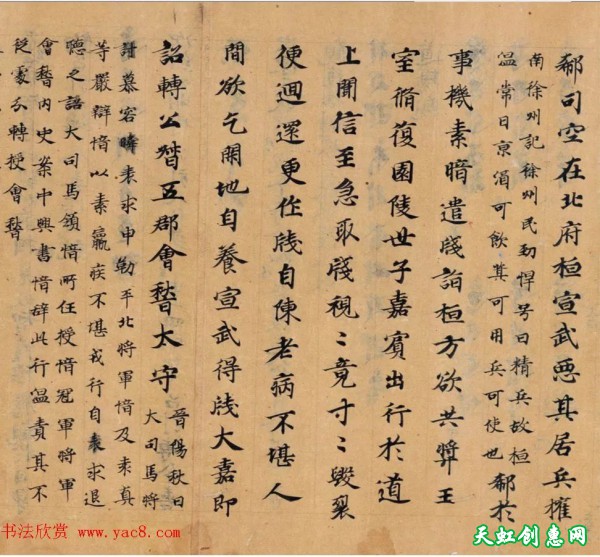 郗司空在北府桓宣武惡其居兵擁
南徐州記徐州民勁悍号曰精兵故桓
温常曰京酒可飲其可用兵可使也
郗於
事機素暗遣牋詣桓方欲共奨王
室脩復園陵世子嘉賓出行於道
上聞信至急取牋視〻竟寸〻毀裂
便迴還更作牋自陳老病不堪人
間欲乞閑地自養宣武得牋大嘉即
詔轉公督五郡會稽太守
晉陽秋曰
大司馬將
討慕容暐表求申勸平北將軍愔及袁真
等嚴辯愔以素羸疾不堪戎行自表求退
聴之詔大司馬領愔所任授愔冠軍將軍
會稽內史案中興書愔辞此行温責其不
從處分轉授會稽
书法欣赏 www.yac8.com
天虹创惠网